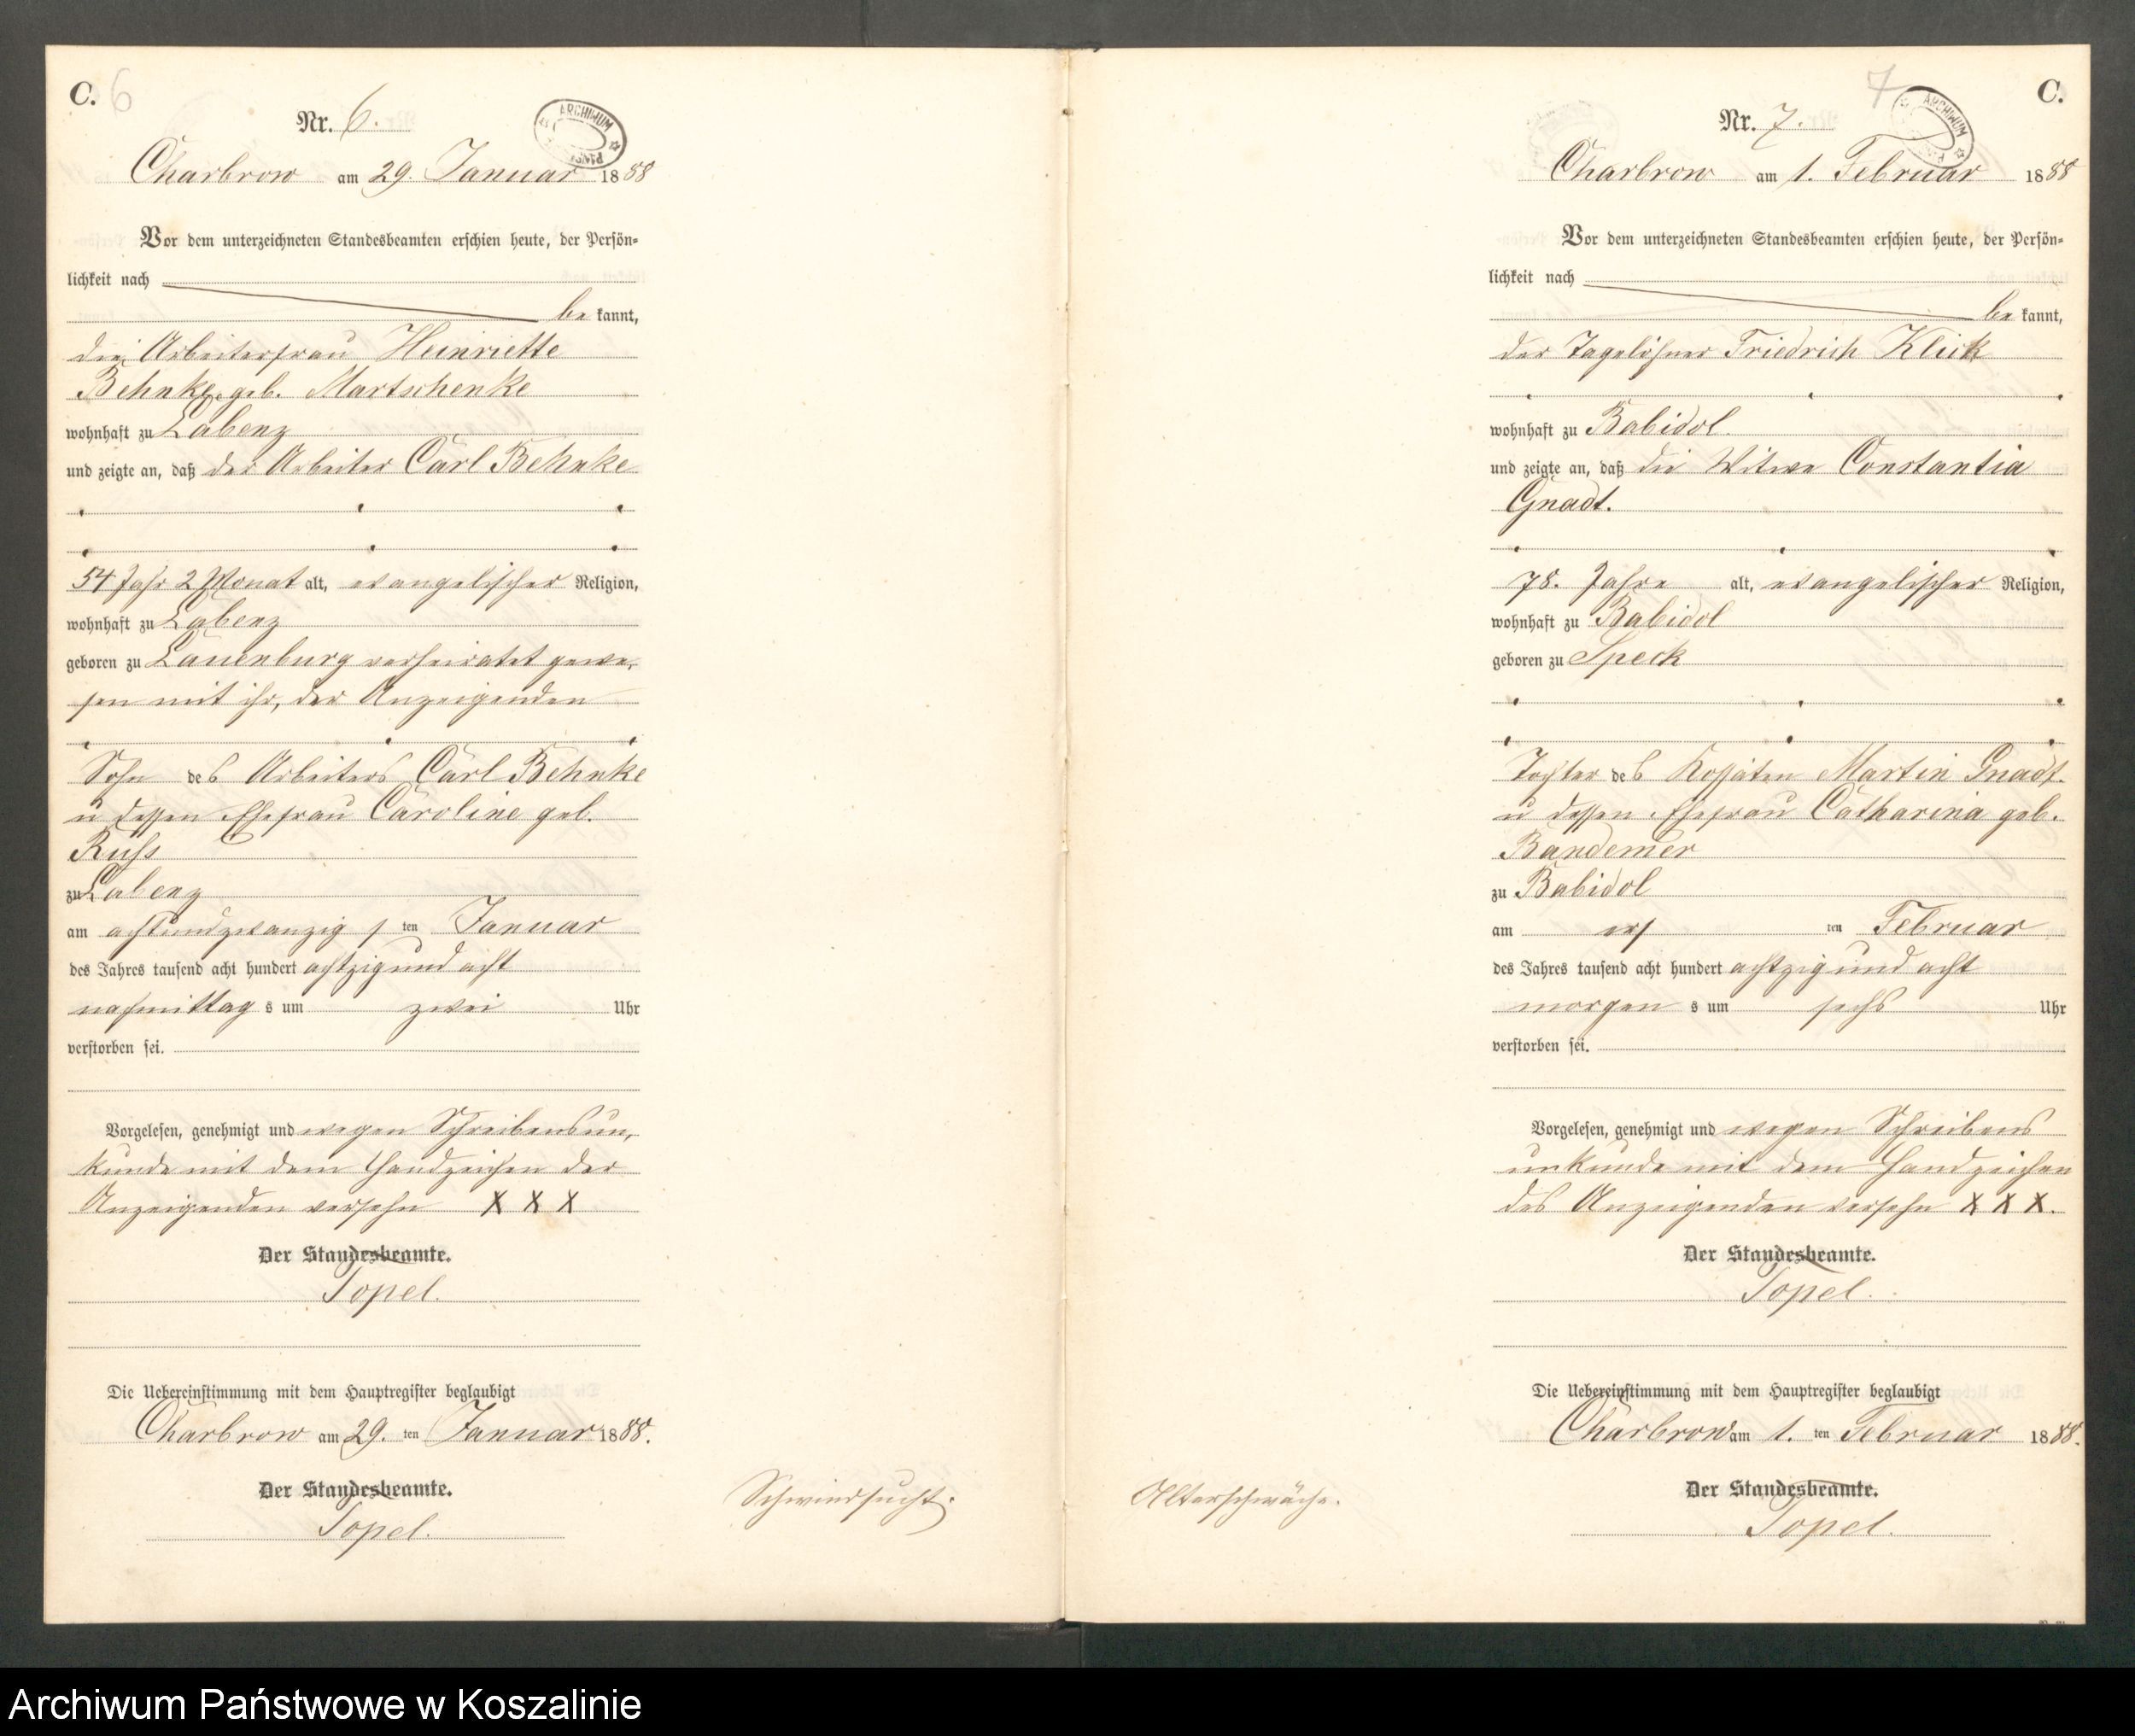 C. 6
Nr. 6.
ARCHIWUM
Charbrow am 29. Januar 1888
Vor dem unterzeichneten Standesbeamten erschien heute, der Persön-
lichkeit nach
be kannt,
die Arbeiterfrau Heinriette
Behnke, geb. Martschenke
wohnhaft zu Labenz
und zeigte an, daß der Arbeiter Carl Behnke
54 Jahr 2 Monat alt, evangelischer Religion,
wohnhaft zu Labenz
geboren zu Lauenburg verheiratet gewe-
sen mit ihr, der Anzeigenden
Sohn des Arbeiters Carl Behnke
u dessen Ehefrau Caroline geb.
Rufs
zu Labenz
am achtundzwanzigsten Januar
des Jahres tausend acht hundert achtzig und acht
nachmittag s um zwei Uhr
verstorben sei.
Vorgelesen, genehmigt und wegen Schreibensun-
kunde mit dem Handzeichen der
Anzeigenden versehn X X X
Der Standesbeamte.
Topel.
Die Uebereinstimmung mit dem Hauptregister beglaubigt
Charbrow am 29. ten Januar 1888.
Der Standesbeamte.
Topel.
Schwindsucht.
7 C.
Nr. 7.
ARCHIWUM
Charbrow am 1. Februar 1888
Vor dem unterzeichneten Standesbeamten erschien heute, der Persön-
lichkeit nach
be kannt,
der Tagelöhner Friedrich Klick
wohnhaft zu Babidol
und zeigte an, daß die Witwe Constantia
Gnadt.
78. Jahre alt, evangelischer Religion,
wohnhaft zu Babidol
geboren zu Speck
Tochter des Kossäten Martin Gnadt.
u dessen Ehefrau Catharina geb.
Bandemer
zu Babidol
am ersten Februar
des Jahres tausend acht hundert achtzig und acht
morgen s um sechs Uhr
verstorben sei.
Vorgelesen, genehmigt und wegen Schreibens
unkunde mit dem Handzeichen
des Anzeigenden versehn X X X.
Der Standesbeamte.
Topel.
Die Uebereinstimmung mit dem Hauptregister beglaubigt
Charbrow am 1. ten Februar 1888.
Der Standesbeamte.
Topel.
Alterschwäche.
Archiwum Państwowe w Koszalinie